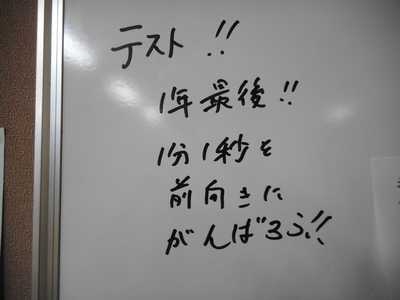 テスト!!
1年最後!!
1分1秒を
前向きに
がんばろう!!